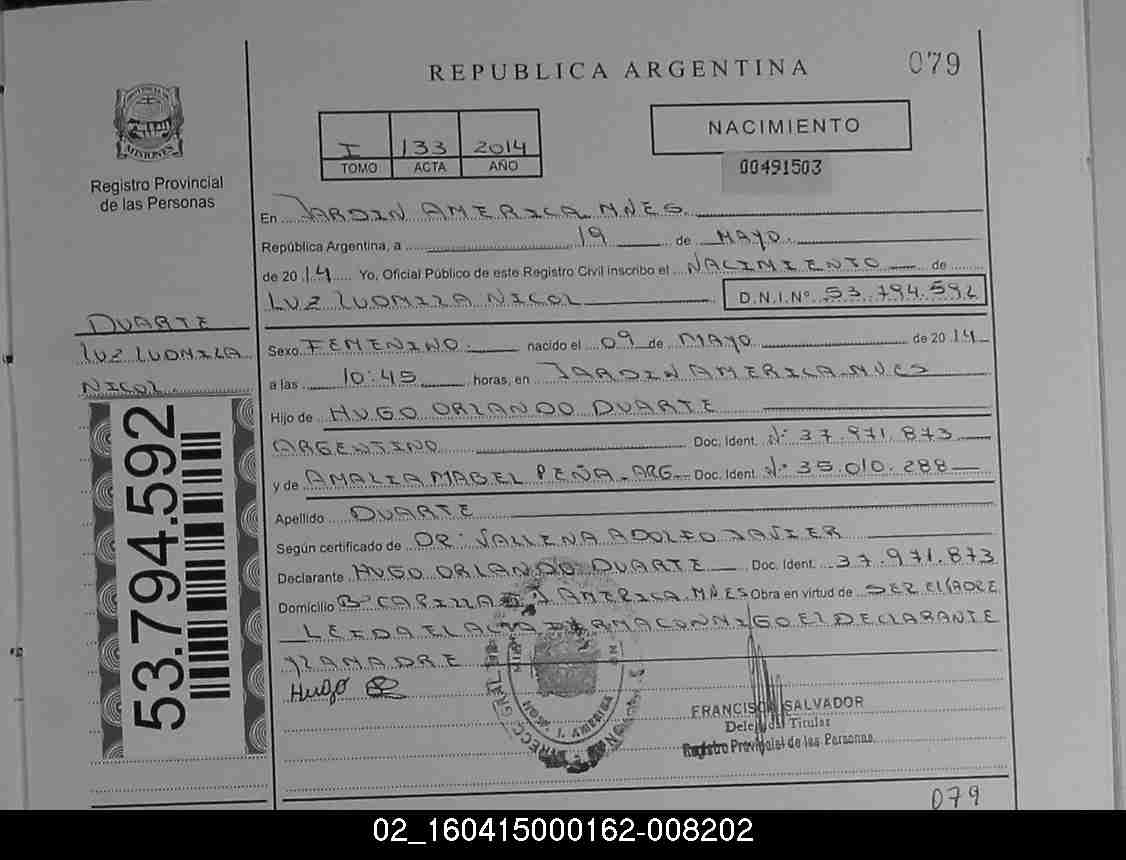 REPUBLICA ARGENTINA
079
PROVINCIA DE
MISIONES
Registro Provincial
de las Personas
I 133 2014
TOMO ACTA AÑO
NACIMIENTO
00491503
En JARDIN AMERICA MNES.
República Argentina, a 19 de MAYO.
de 2014 Yo, Oficial Público de este Registro Civil inscribo el NACIMIENTO de
LUZ LUDMILA NICOL D.N.I.Nº 53.794.592
DUARTE
LUZ LUDMILA
NICOL
53.794.592
Sexo FEMENINO. nacido el 09 de MAYO de 2014
a las 10:45 horas, en JARDIN AMERICA-MNES
Hijo de HUGO ORLANDO DUARTE
ARGENTINO Doc. Ident. Nº 37.971.873
y de AMALIA MABEL PEÑA-ARG. Doc. Ident. Nº 35.010.288
Apellido DUARTE
Según certificado de DR: VALLENA ADOLFO JAVIER
Declarante HUGO ORLANDO DUARTE Doc. Ident. 37.971.873
Domicilio Bº J. AMERICA.MNES Obra en virtud de SER EL PADRE
LEIDA EL ACTA FIRMA CONMIGO EL DECLARANTE
Y LA MADRE
Hugo
J. AMERICA
FRANCISCO SALVADOR
Delegado Titular
Registro Provincial de las Personas
079
02_160415000162-008202